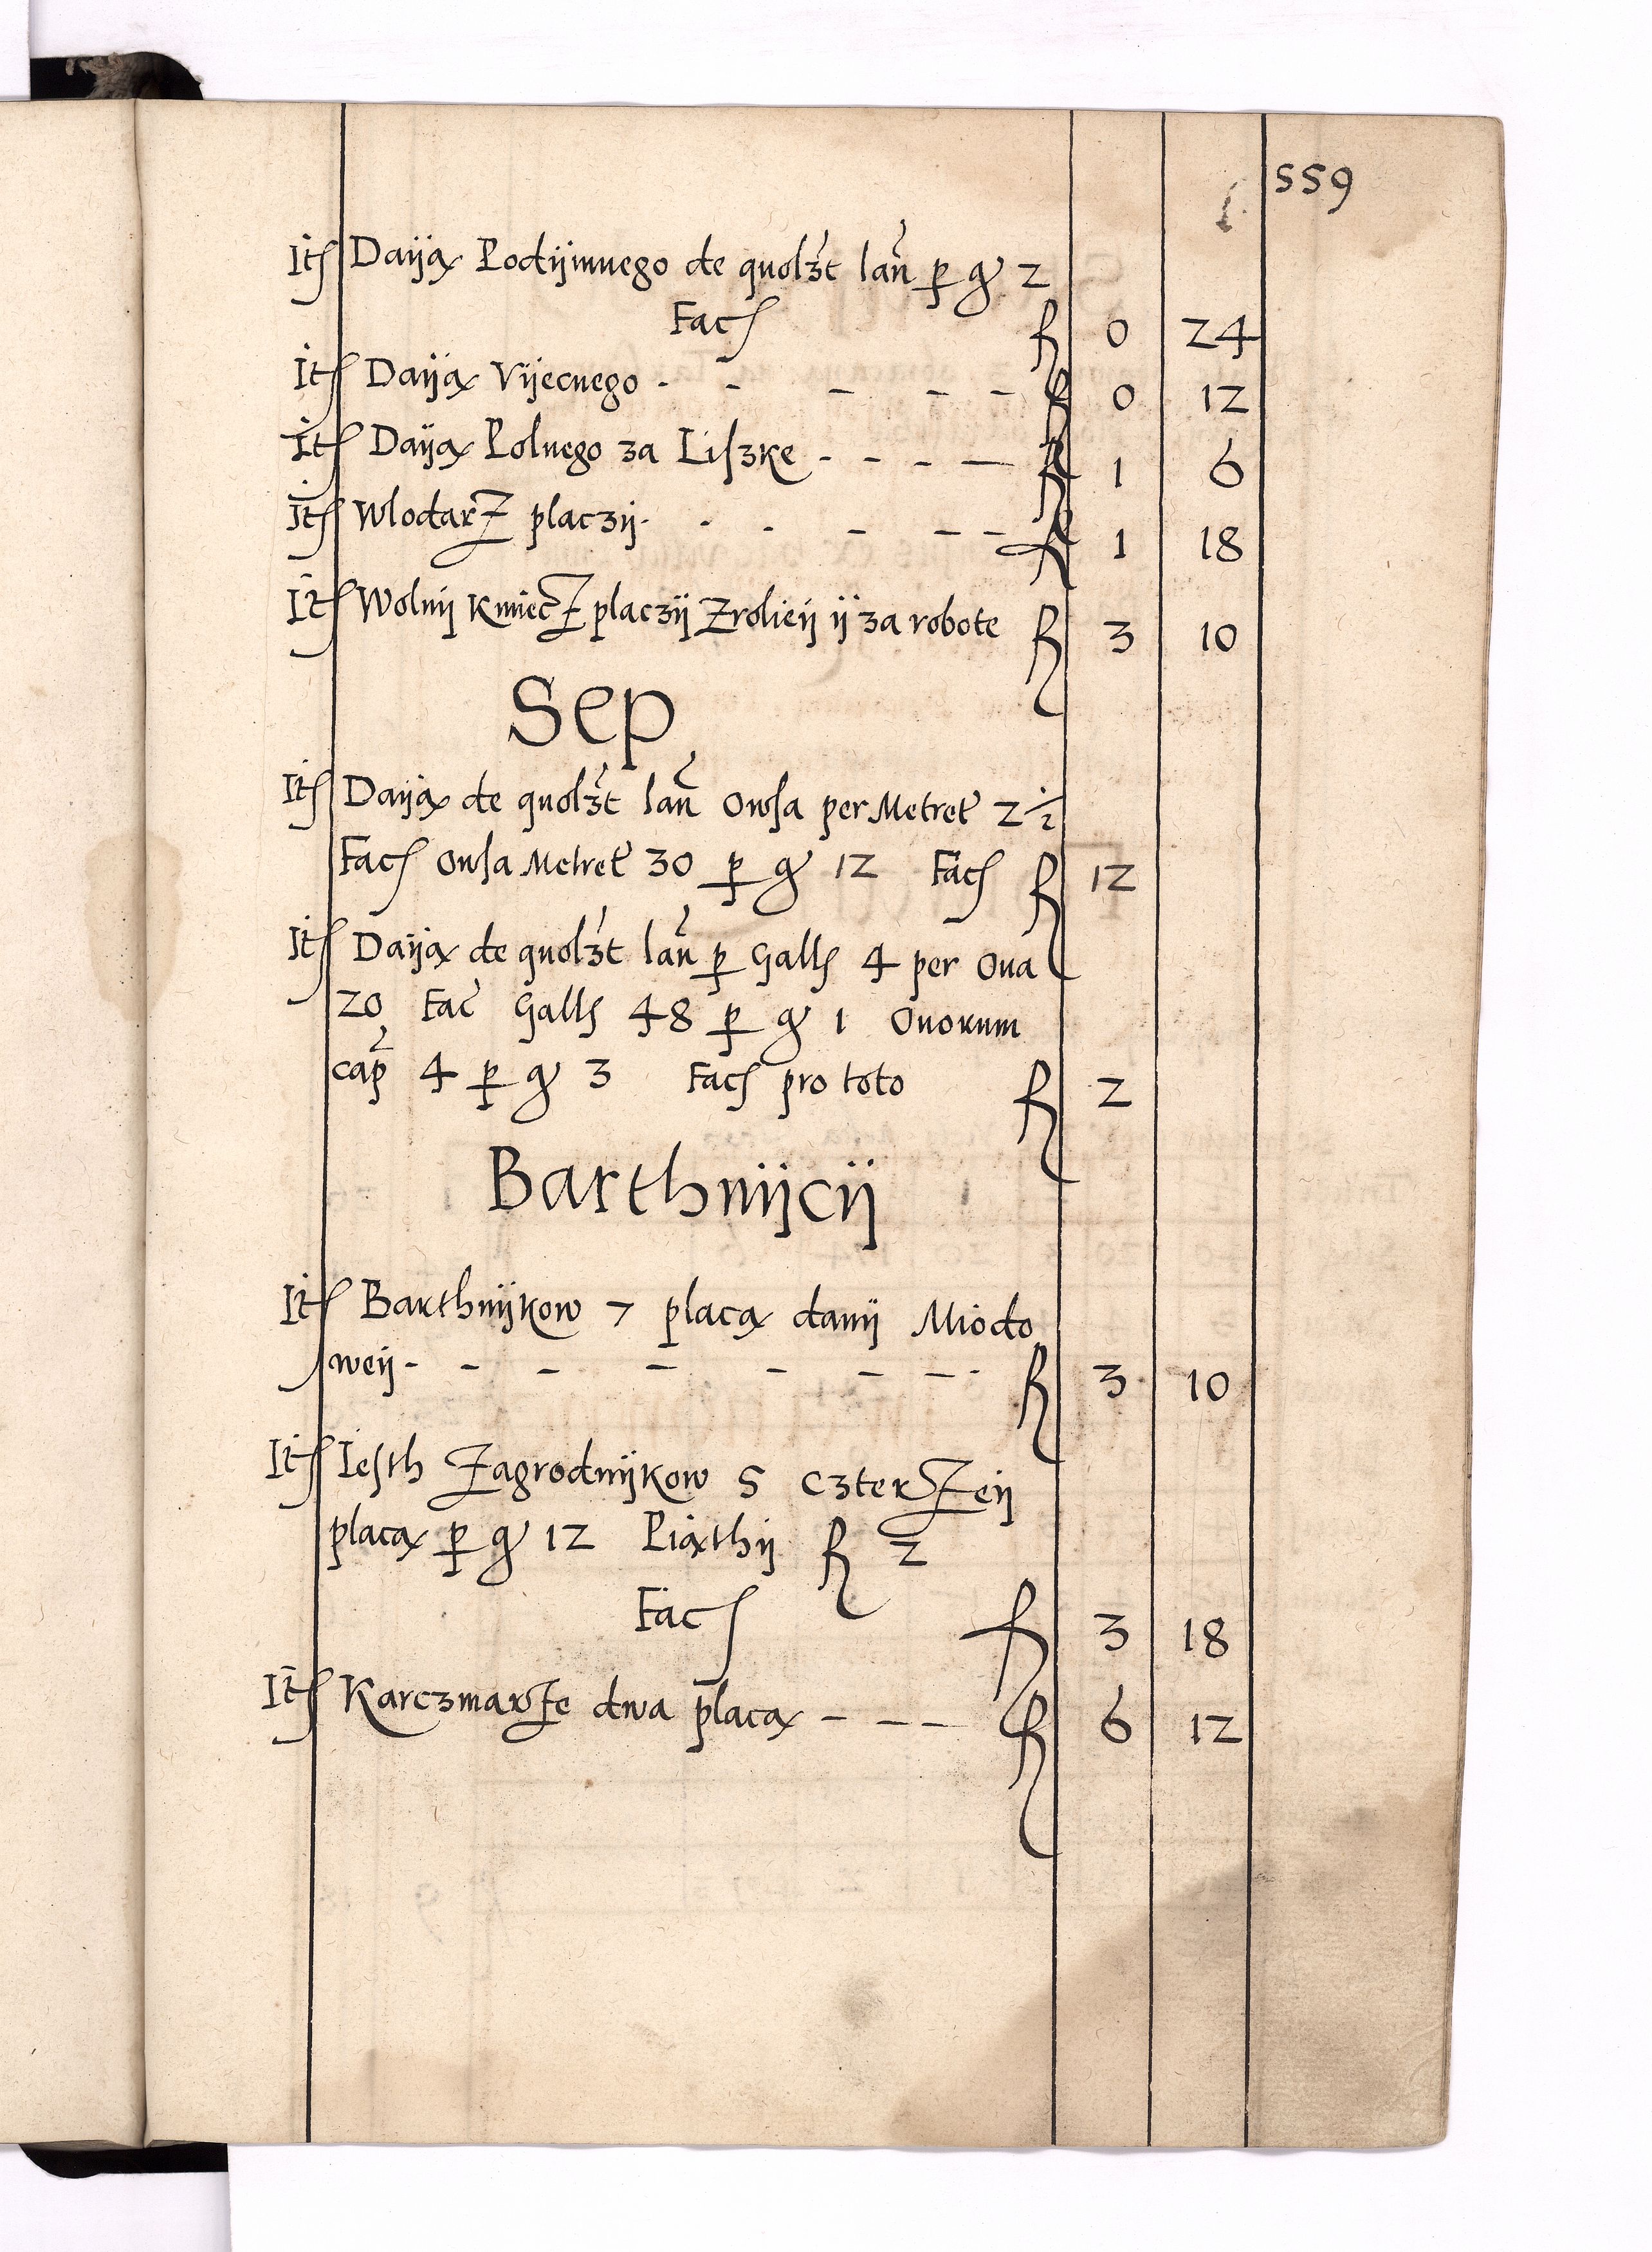 559
Itē Daÿą Podÿmnego de quolꝫt lan̄ p gͬ 2
Facē f 0 24
Itē Daÿą Vÿecnego - - - - - f 0 12
Itē Daÿą Polnego za Liszke - - - - f 1 6
Itē WlodarZ placzÿ - - - - - - f 1 18
Itē Wolnÿ KmiecZ placzÿ Zrolieÿ ÿ za robote f 3 10
Sep
Itē Daÿą de quolꝫt lan̄ Owsa per Metret 2 ½
Facē Owsa Metret 30 p gͬ 12 Facē f 12
Itē Daÿą de quolꝫt lan̄ p Gallē 4 per Oua
20 Fac Gallē 48 p gͬ 1 Ouorum
cap̄ 4 p gͬ 3 Facē pro toto f 2
Barthnÿcÿ
Itē Barthnÿkow 7 płacą danÿ Miodo
weÿ - - - - - - - f 3 10
Itē Iesth Zagrodnÿkow 5 czterZeÿ
placą p gͬ 12 Piąthÿ f 2
Facē f 3 18
Itē KarczmarZe dwa placą - - - f 6 12